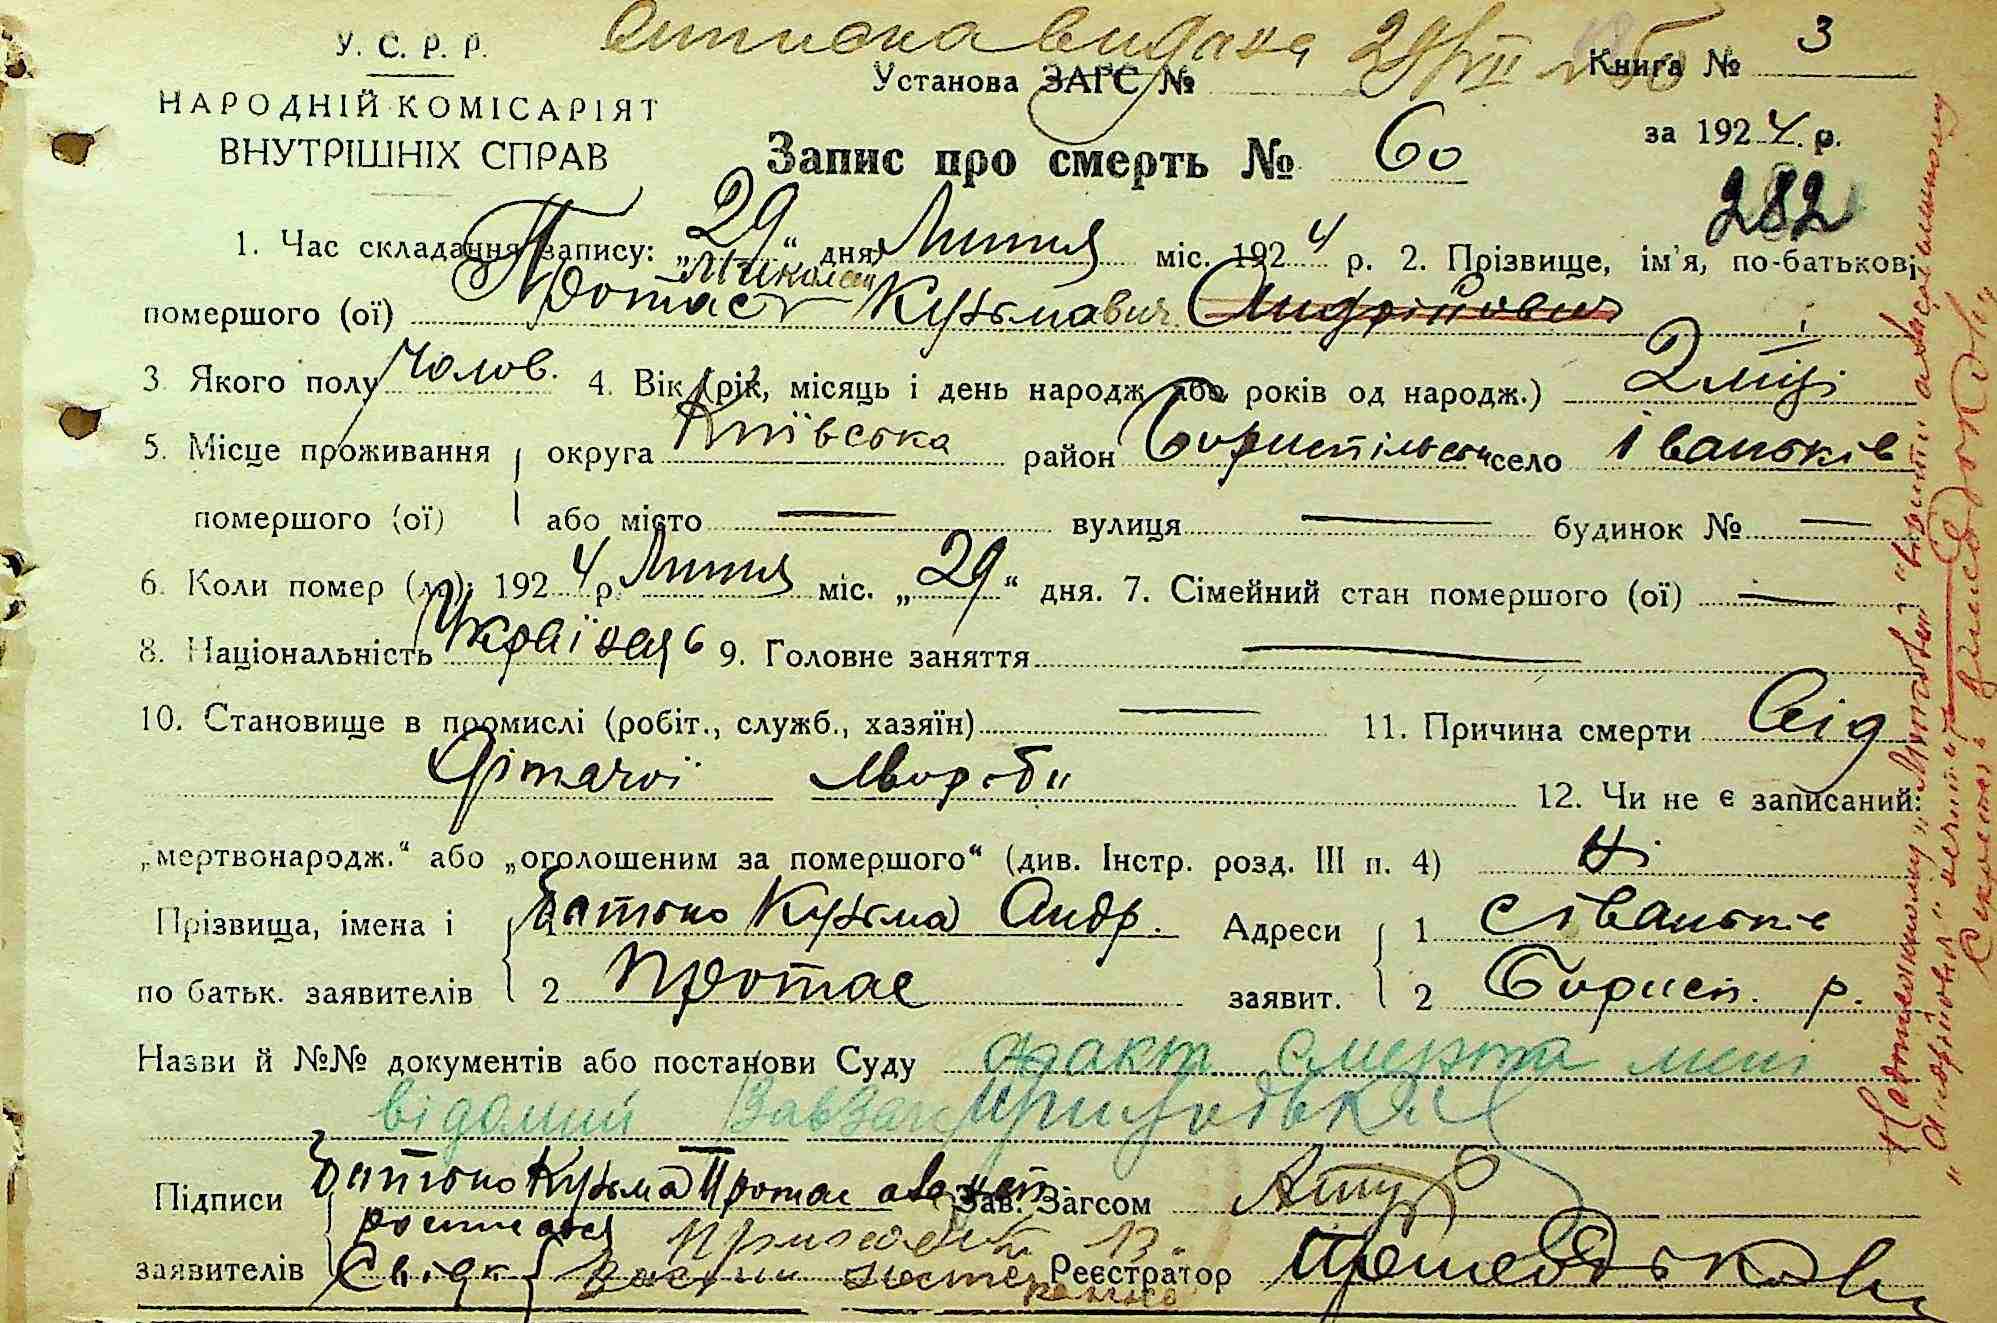 У. С. Р. Р.
НАРОДНІЙ КОМІСАРІЯТ
ВНУТРІШНІХ СПРАВ
видана 29/VII
Установа ЗАГС №
Книга № 3
за 1924 р.
Запис про смерть № 60
282
1. Час складання запису: „29“ дня Липня міс. 1924 р. 2. Прізвище, ім’я, по-батькові
„Микола“
помершого (ої) Протас Кузьмавич Андрійович
3. Якого полу Чолов. 4. Вік (рік, місяць і день народж. або років од народж.) 2 міці
5. Місце проживання округа Київська район Бориспільськ село Іваньків
помершого (ої) або місто — вулиця — будинок № —
6. Коли помер (ла): 1924 р. Липня міс. „29“ дня. 7. Сімейний стан помершого (ої) —
8. Національність Українець 9. Головне заняття —
10. Становище в промислі (робіт., служб., хазяїн) — 11. Причина смерти Від
Дітячої хвороби 12. Чи не є записаний:
„мертвонародж.“ або „оголошеним за помершого“ (див. Інстр. розд. III п. 4) Ні
Прізвища, імена і 1 Батько Кузьма Андр. Адреси 1 с Іваньків
по батьк. заявителів 2 Протас заявит. 2 Борисп. р.
Назви й №№ документів або постанови Суду факт смерти мені
відомий
Підписи Батько Кузьма Протас Зав. Загсом
росписався
заявителів Свідк Реєстратор